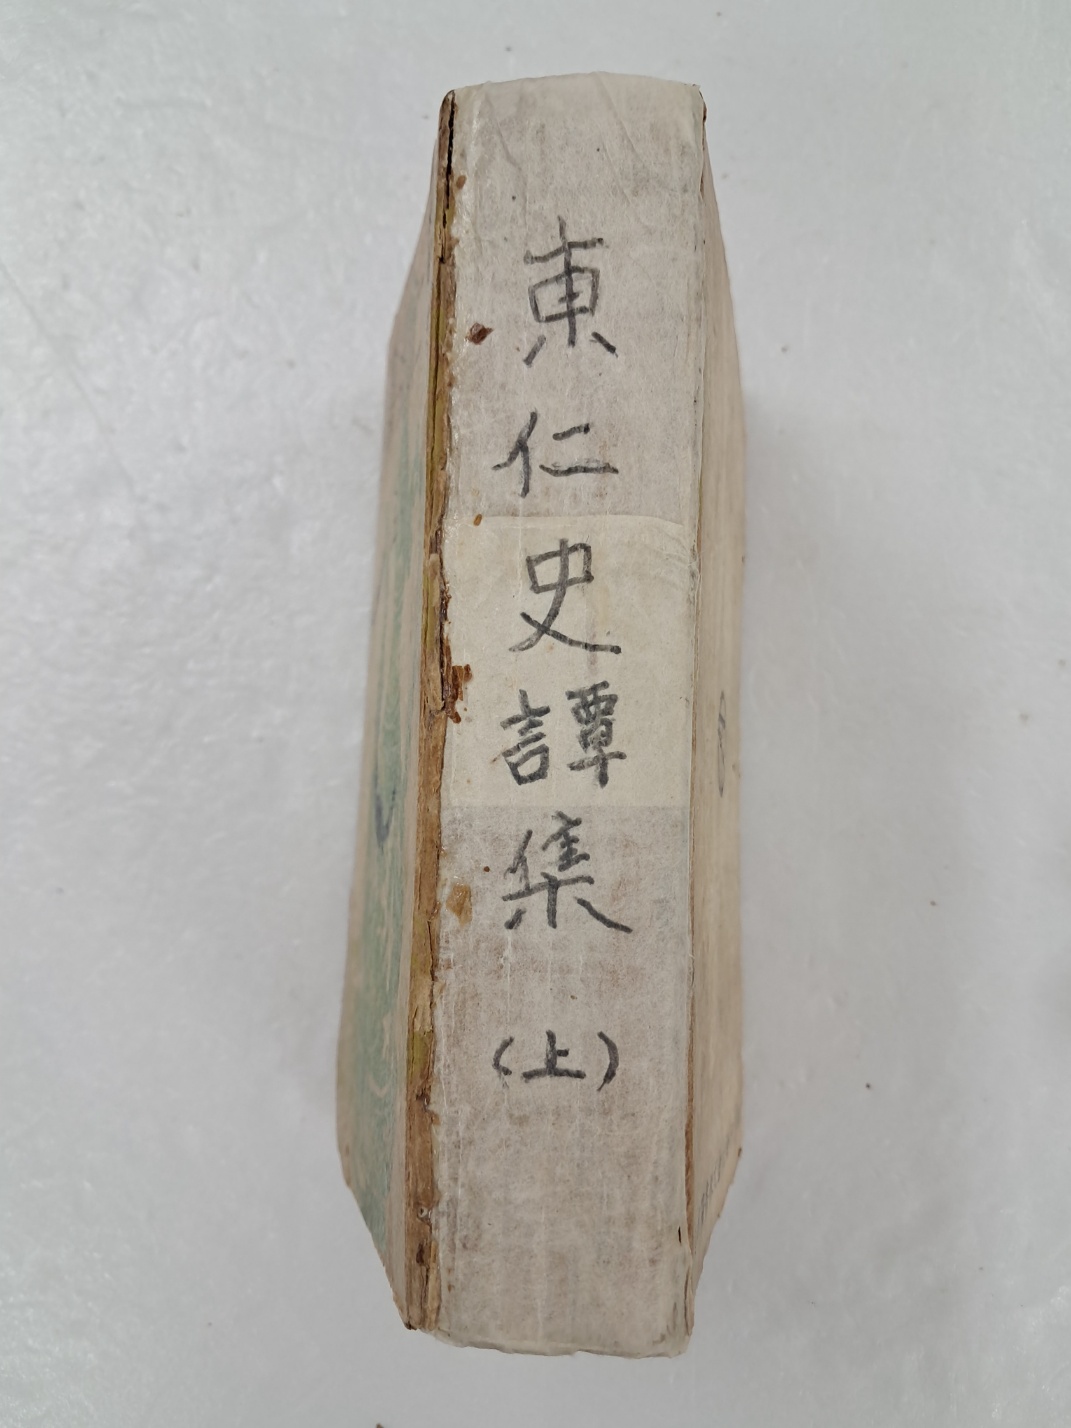 東仁史譚集
(上)